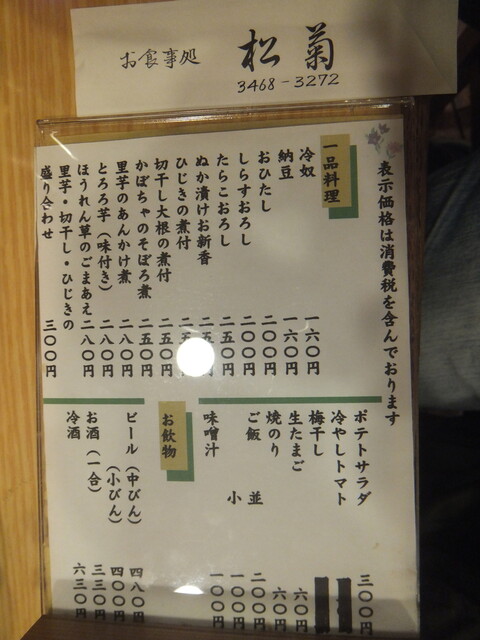 お食事処 松菊
3468-3272
表示価格は消費税を含んでおります
一品料理
冷奴 一六〇円
納豆 一六〇円
おひたし 二〇〇円
しらすおろし 二〇〇円
たらこおろし 二五〇円
ぬか漬けお新香 二五 円
ひじきの煮付 二五 円
切干し大根の煮付 二五〇円
かぼちゃのそぼろ煮 二五〇円
里芋のあんかけ煮 二八〇円
とろろ芋（味付き） 二八〇円
ほうれん草のごまあえ 二八〇円
里芋・切干し・ひじきの
盛り合わせ 三〇〇円
ポテトサラダ 三〇〇円
冷やしトマト
梅干し
生たまご 六〇円
焼のり 六〇円
ご飯 並 二〇〇円
小 一〇〇円
味噌汁 一〇〇円
お飲物
ビール（中びん） 四八〇円
（小びん） 四〇〇円
お酒（一合） 三三〇円
冷酒 六三〇円